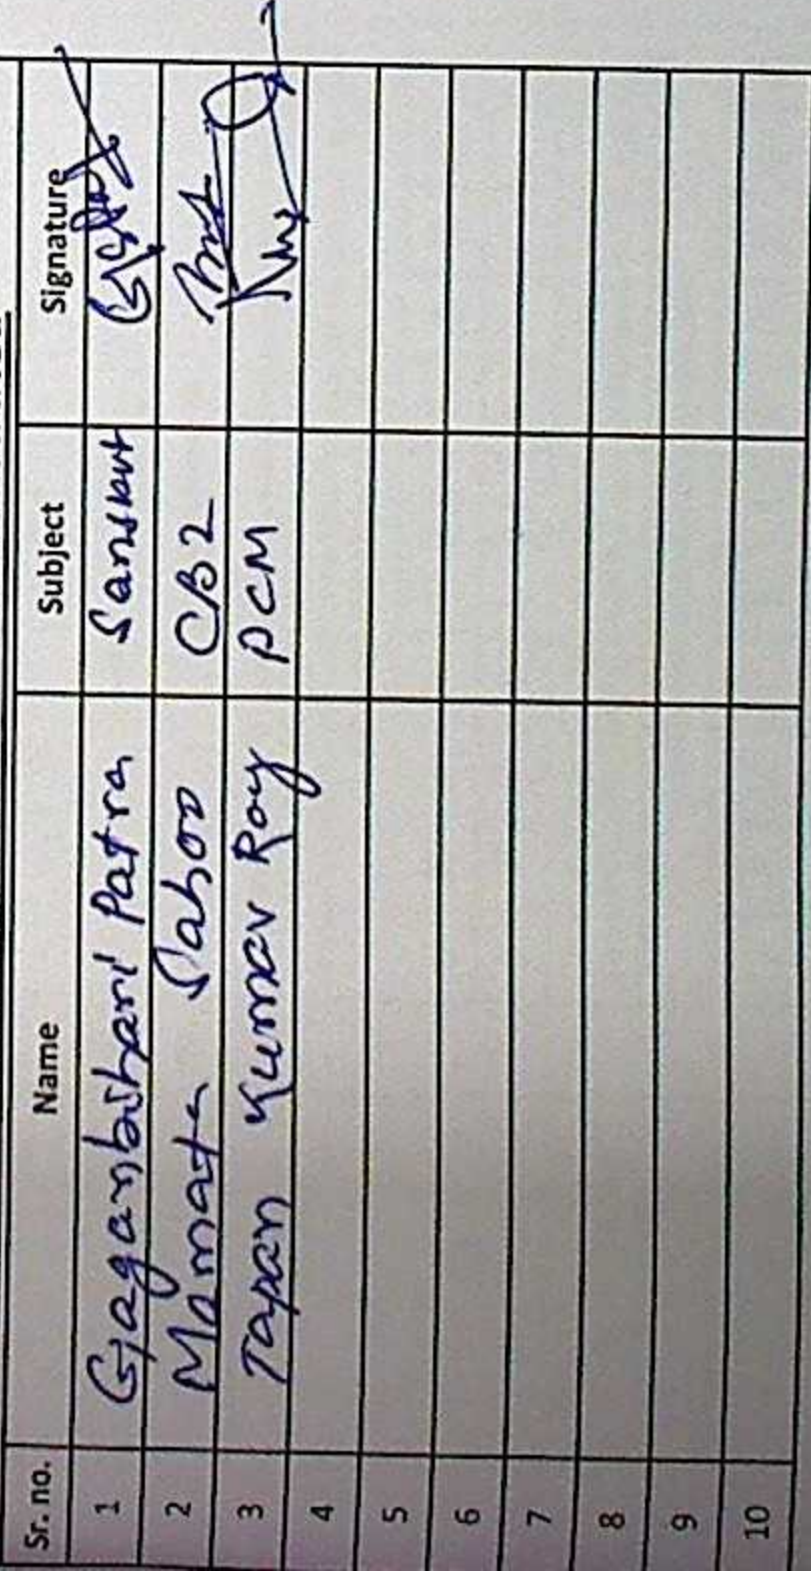 Sr. no. Name Subject Signature
1 Gaganbihari Patra Sanskrit
2 Mamata Sahoo CBZ
3 Tapan Kumar Roy PCM
4
5
6
7
8
9
10